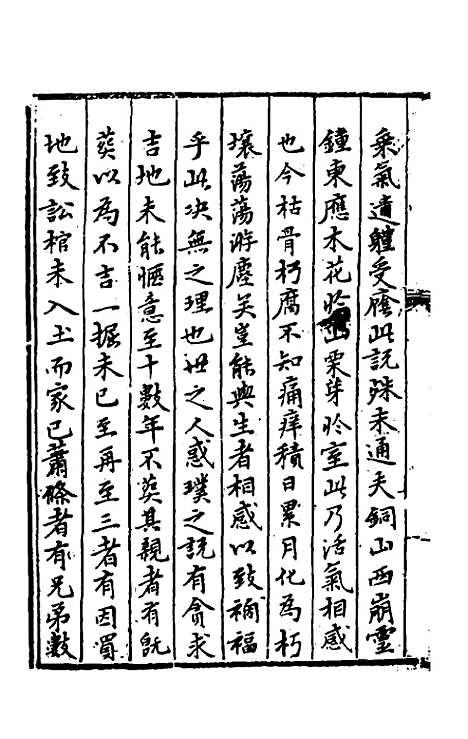 乘氣遺體受廕此説殊未通夫銅山西崩靈
鐘東應木花於山栗芽於室此乃活氣相感
也今枯骨朽腐不知痛痒積日累月化為朽
壤蕩蕩游塵矣豈能與生者相感以致禍福
乎此决無之理也世之人惑璞之説有貪求
吉地未能愜意至十數年不葬其親者有旣
葬以為不吉一掘未已至再至三者有因買
地致訟棺未入土而家已蕭條者有兄弟數